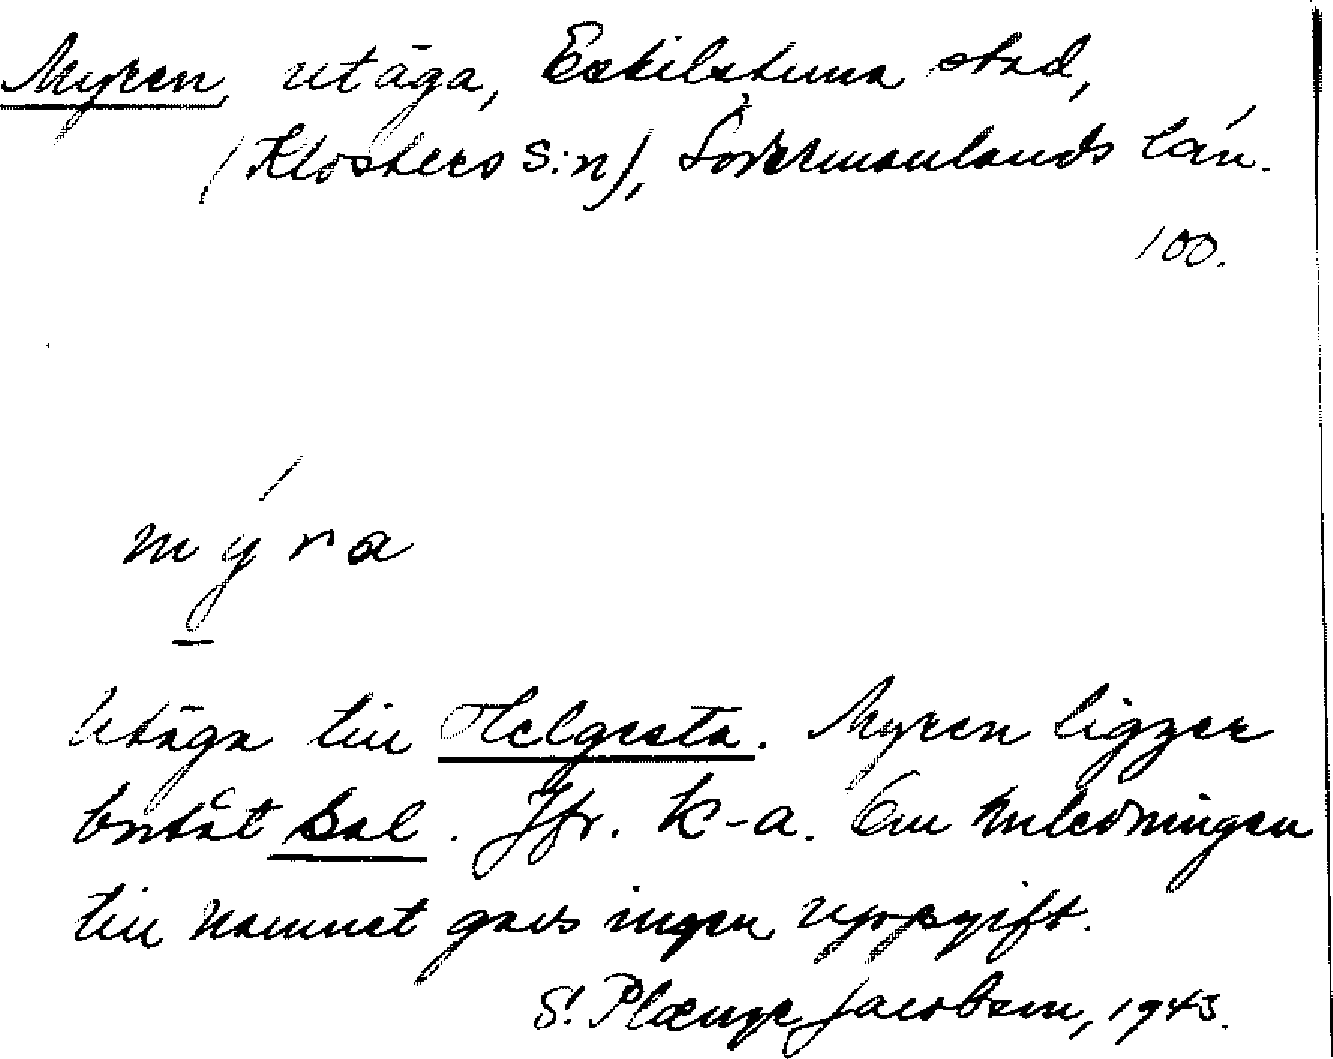 Myren, utäga, Eskilstuna stad,
(Klosters s:n), Södermanlands län.
100.
mýra
Utäga till Helgesta. Myren ligger
bortåt Sal. Jfr. k-a. Om anledningen
till namnet gavs ingen uppgift.
S. Plænge Jacobson, 1943.